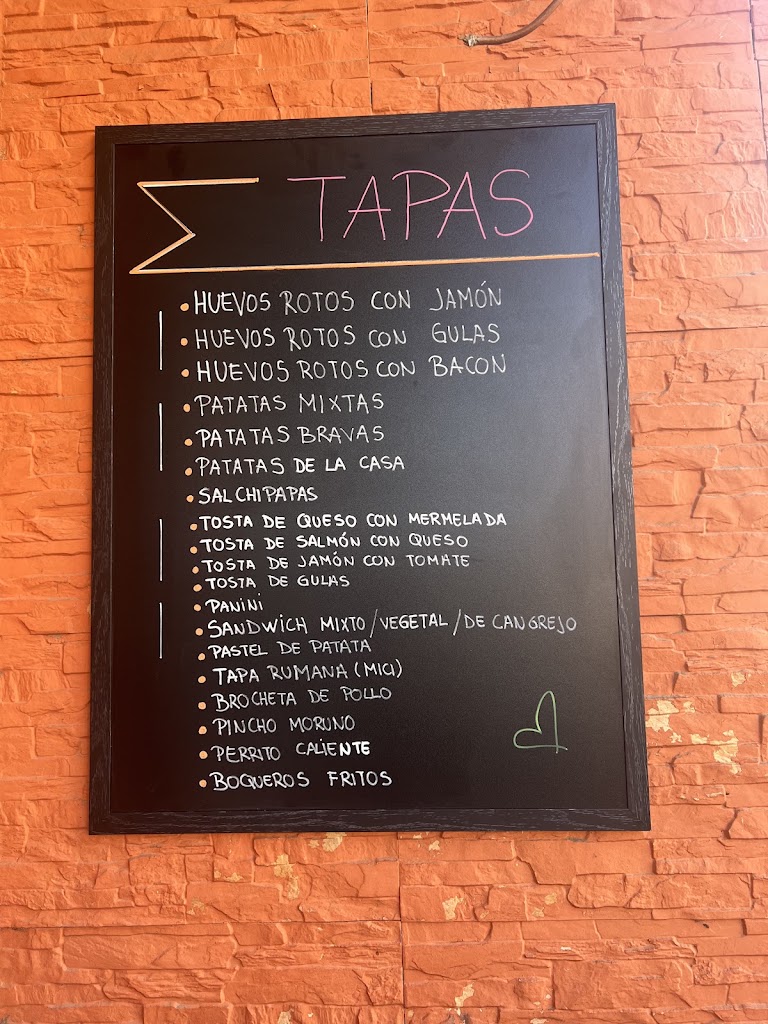 TAPAS
• HUEVOS ROTOS CON JAMÓN
• HUEVOS ROTOS CON GULAS
• HUEVOS ROTOS CON BACON
• PATATAS MIXTAS
• PATATAS BRAVAS
• PATATAS DE LA CASA
• SALCHIPAPAS
• TOSTA DE QUESO CON MERMELADA
• TOSTA DE SALMÓN CON QUESO
• TOSTA DE JAMÓN CON TOMATE
• TOSTA DE GULAS
• PANINI
• SANDWICH MIXTO/VEGETAL/DE CANGREJO
• PASTEL DE PATATA
• TAPA RUMANA (MICI)
• BROCHETA DE POLLO
• PINCHO MORUNO
• PERRITO CALIENTE
• BOQUEROS FRITOS